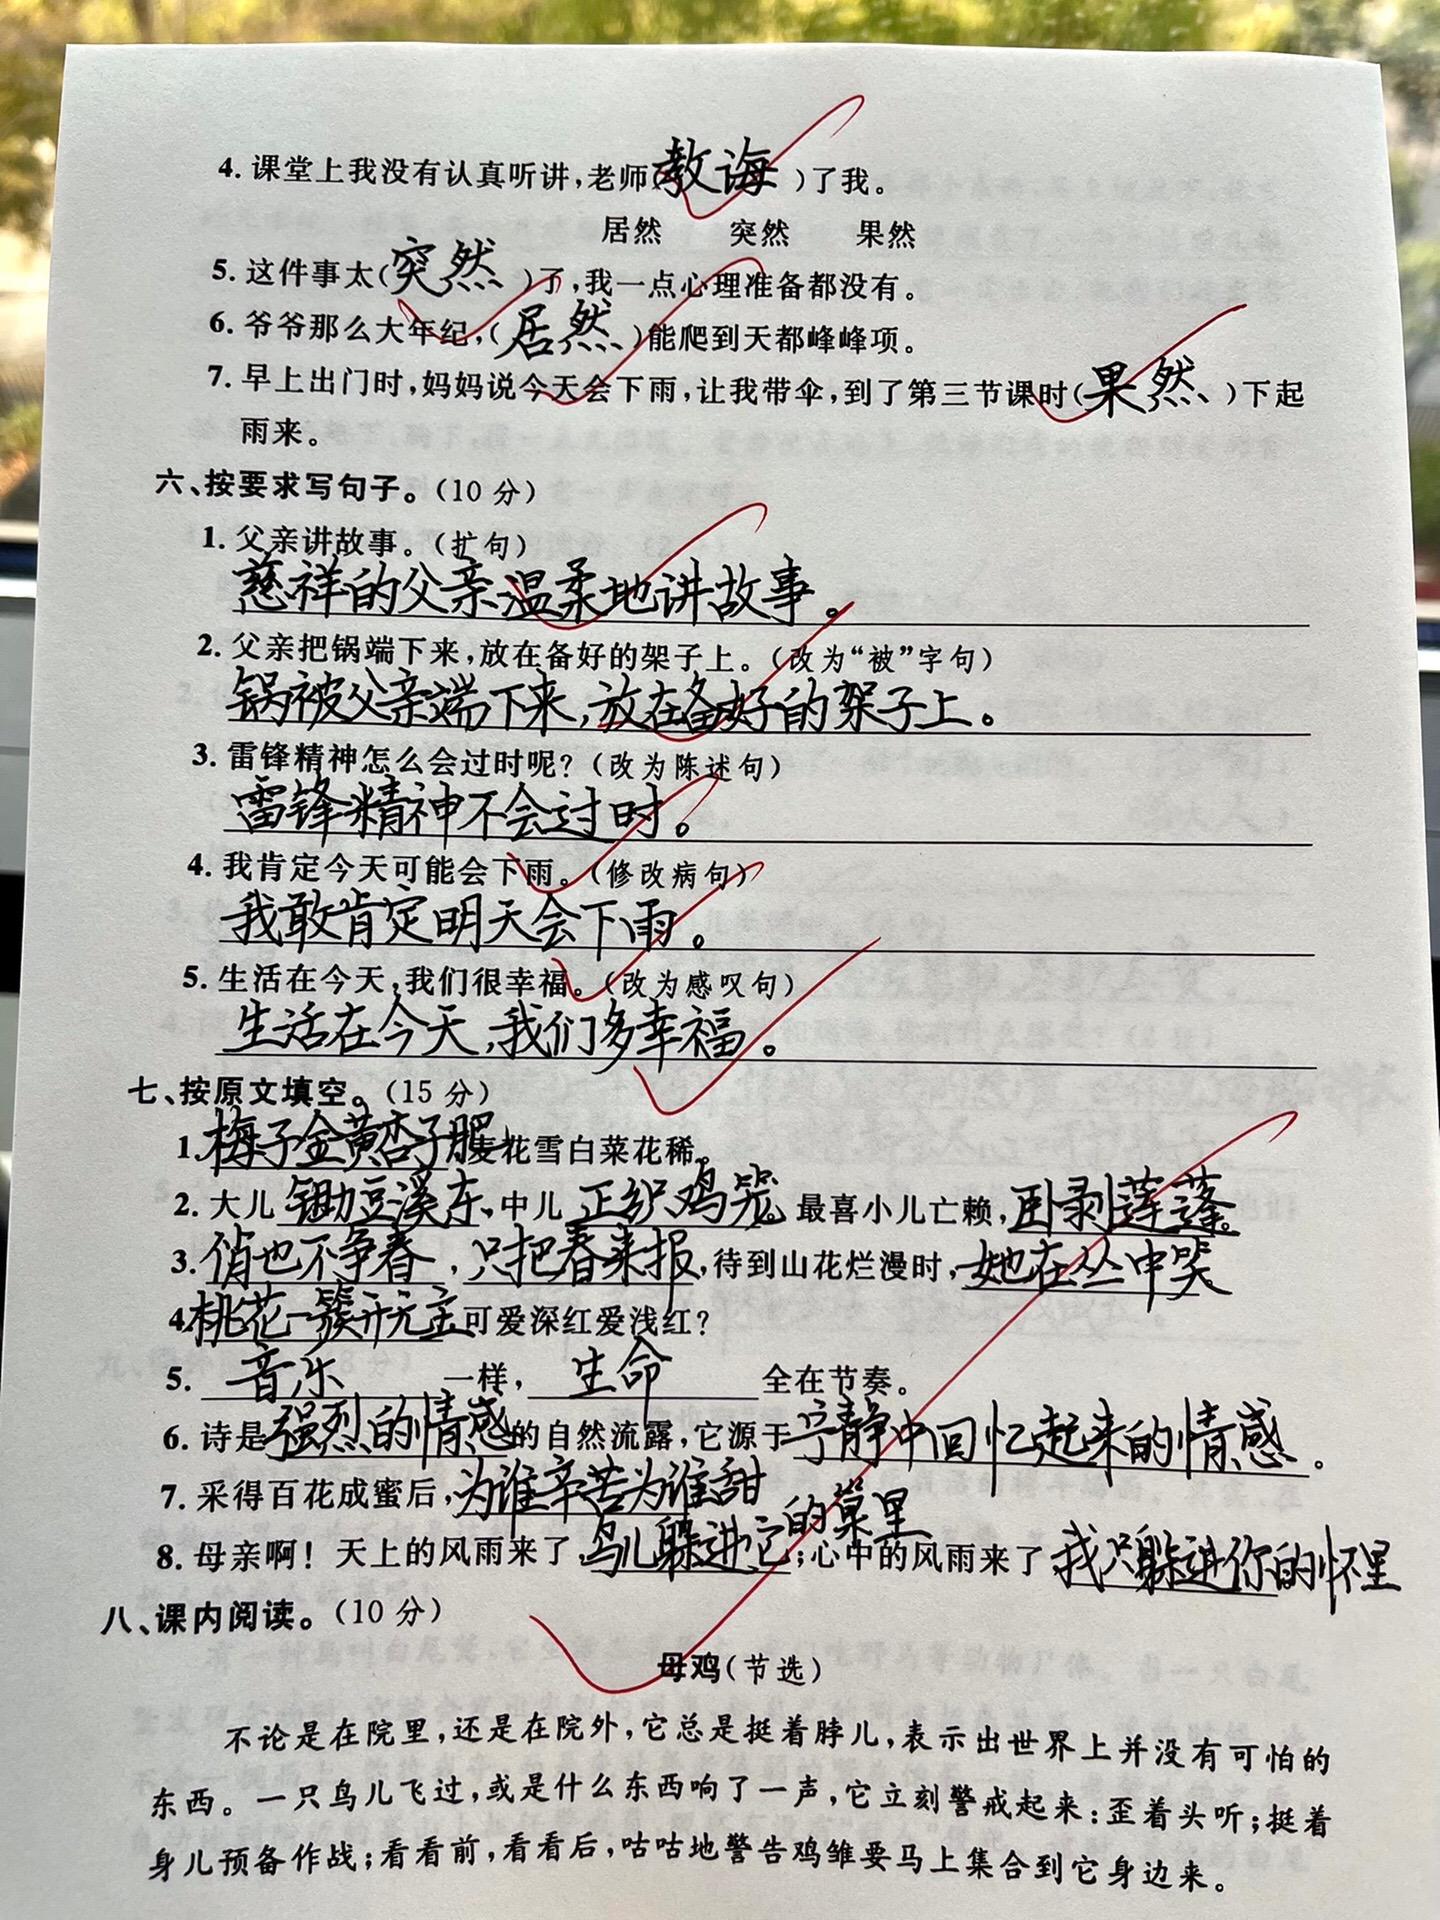 4. 课堂上我没有认真听讲,老师(教诲)了我。
居然 突然 果然
5. 这件事太(突然)了,我一点心理准备都没有。
6. 爷爷那么大年纪,(居然)能爬到天都峰峰项。
7. 早上出门时,妈妈说今天会下雨,让我带伞,到了第三节课时(果然)下起
雨来。
六、按要求写句子。(10分)
1. 父亲讲故事。(扩句)
慈祥的父亲温柔地讲故事。
2. 父亲把锅端下来,放在备好的架子上。(改为“被”字句)
锅被父亲端下来,放在备好的架子上。
3. 雷锋精神怎么会过时呢?(改为陈述句)
雷锋精神不会过时。
4. 我肯定今天可能会下雨。(修改病句)
我敢肯定明天会下雨。
5. 生活在今天,我们很幸福。(改为感叹句)
生活在今天,我们多幸福。
七、按原文填空。(15分)
1. 梅子金黄杏子肥,麦花雪白菜花稀。
2. 大儿锄豆溪东,中儿正织鸡笼。最喜小儿亡赖,卧剥莲蓬。
3. 俏也不争春,只把春来报,待到山花烂漫时,她在丛中笑
4. 桃花一簇开无主可爱深红爱浅红?
5. 音乐一样,生命全在节奏。
6. 诗是强烈的情感的自然流露,它源于宁静中回忆起来的情感。
7. 采得百花成蜜后,为谁辛苦为谁甜
8. 母亲啊!天上的风雨来了,鸟儿躲进它的巢里;心中的风雨来了我只躲进你的怀里
八、课内阅读。(10分)
母鸡(节选)
不论是在院里,还是在院外,它总是挺着脖儿,表示出世界上并没有可怕的
东西。一只鸟儿飞过,或是什么东西响了一声,它立刻警戒起来:歪着头听;挺着
身儿预备作战;看看前,看看后,咕咕地警告鸡雏要马上集合到它身边来。